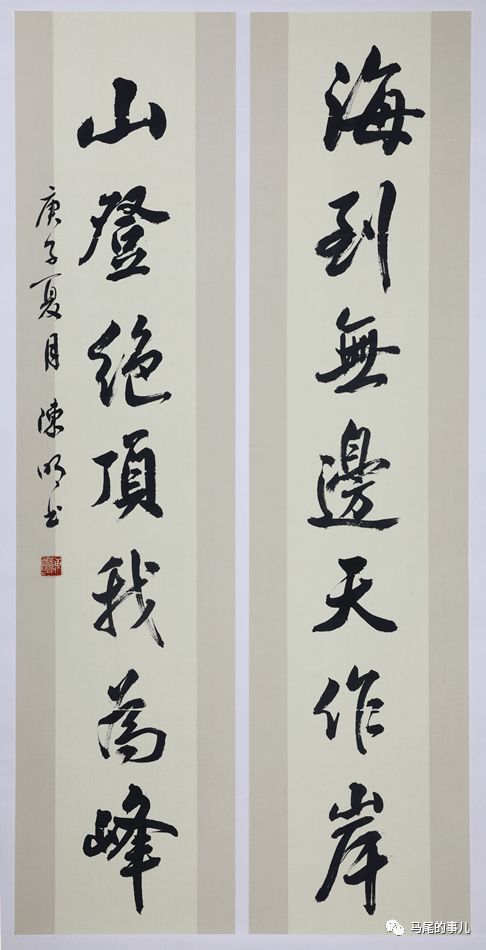 海到無邊天作岸
山登絕頂我為峰
庚子夏月 陳明書
马尾的事儿